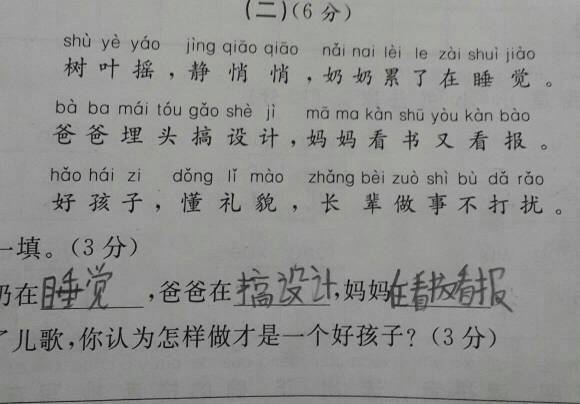 (二)(6分)
shù yè yáo jìng qiāo qiāo nǎi nai lèi le zài shuì jiào
树叶摇，静悄悄，奶奶累了在睡觉。
bà ba mái tóu gǎo shè jì mā ma kàn shū yòu kàn bào
爸爸埋头搞设计，妈妈看书又看报。
hǎo hái zi dǒng lǐ mào zhǎng bèi zuò shì bù dǎ rǎo
好孩子，懂礼貌，长辈做事不打扰。
一填。(3分)
奶在睡觉，爸爸在搞设计，妈妈在看书看报
了儿歌，你认为怎样做才是一个好孩子？(3分)